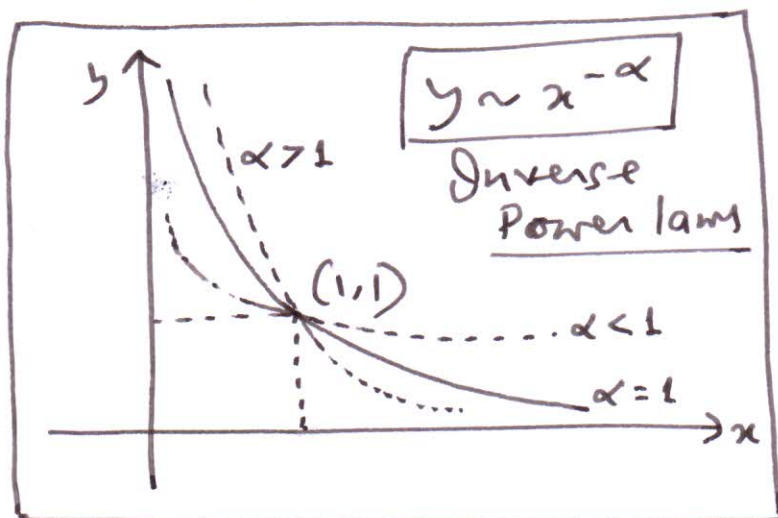 y
y ~ x^{-α}
α > 1
Inverse
Power laws
(1,1)
α < 1
α = 1
x